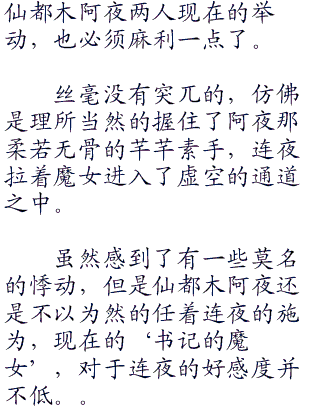 仙都木阿夜两人现在的举
动，也必须麻利一点了。
丝毫没有突兀的，仿佛
是理所当然的握住了阿夜那
柔若无骨的芊芊素手，连夜
拉着魔女进入了虚空的通道
之中。
虽然感到了有一些莫名
的悸动，但是仙都木阿夜还
是不以为然的任着连夜的施
为，现在的‘书记的魔
女’，对于连夜的好感度并
不低。。